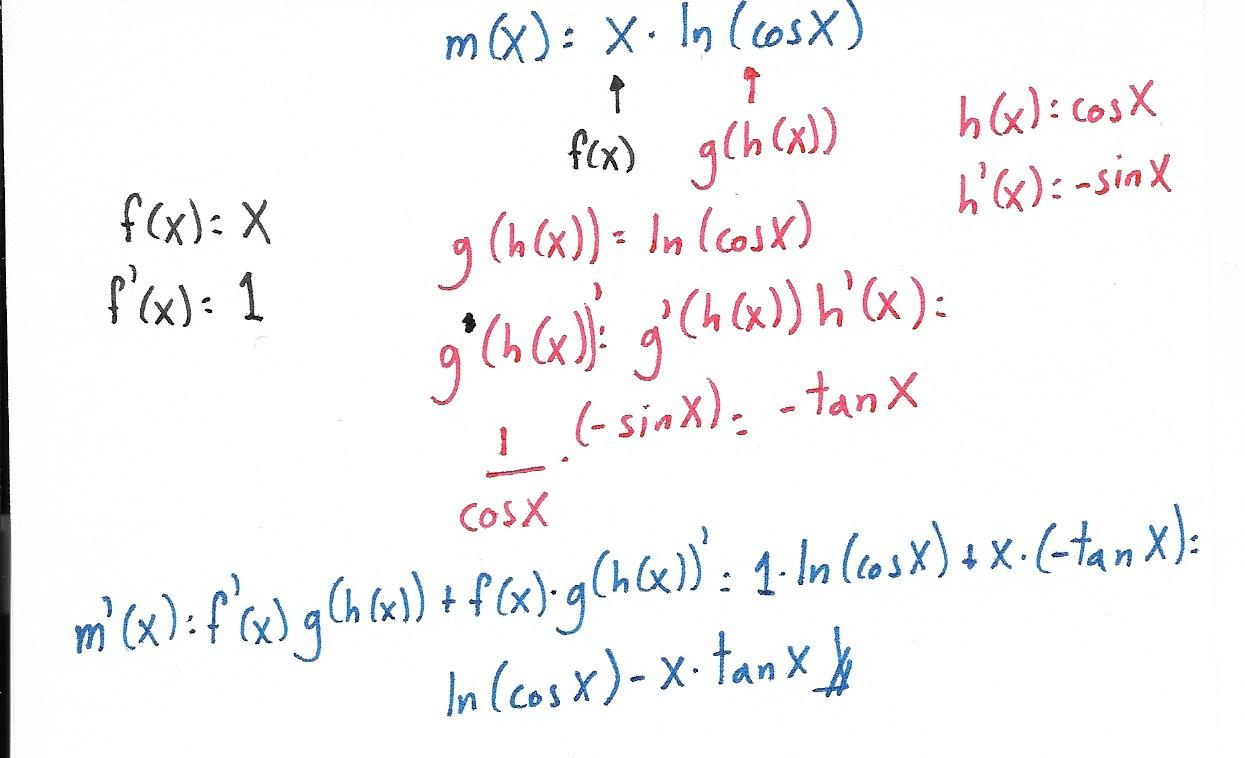 m(x) = x · ln (cosx)
↑ ↑
f(x) g(h(x))
h(x) = cosx
h'(x) = -sinx
f(x) = x
f'(x) = 1
g(h(x)) = ln (cosx)
g(h(x))' = g'(h(x)) h'(x) =
1/cosx · (-sinx) = -tanx
m'(x) = f'(x) g(h(x)) + f(x) · g(h(x))' = 1 · ln(cosx) + x · (-tanx) =
ln(cosx) - x · tanx